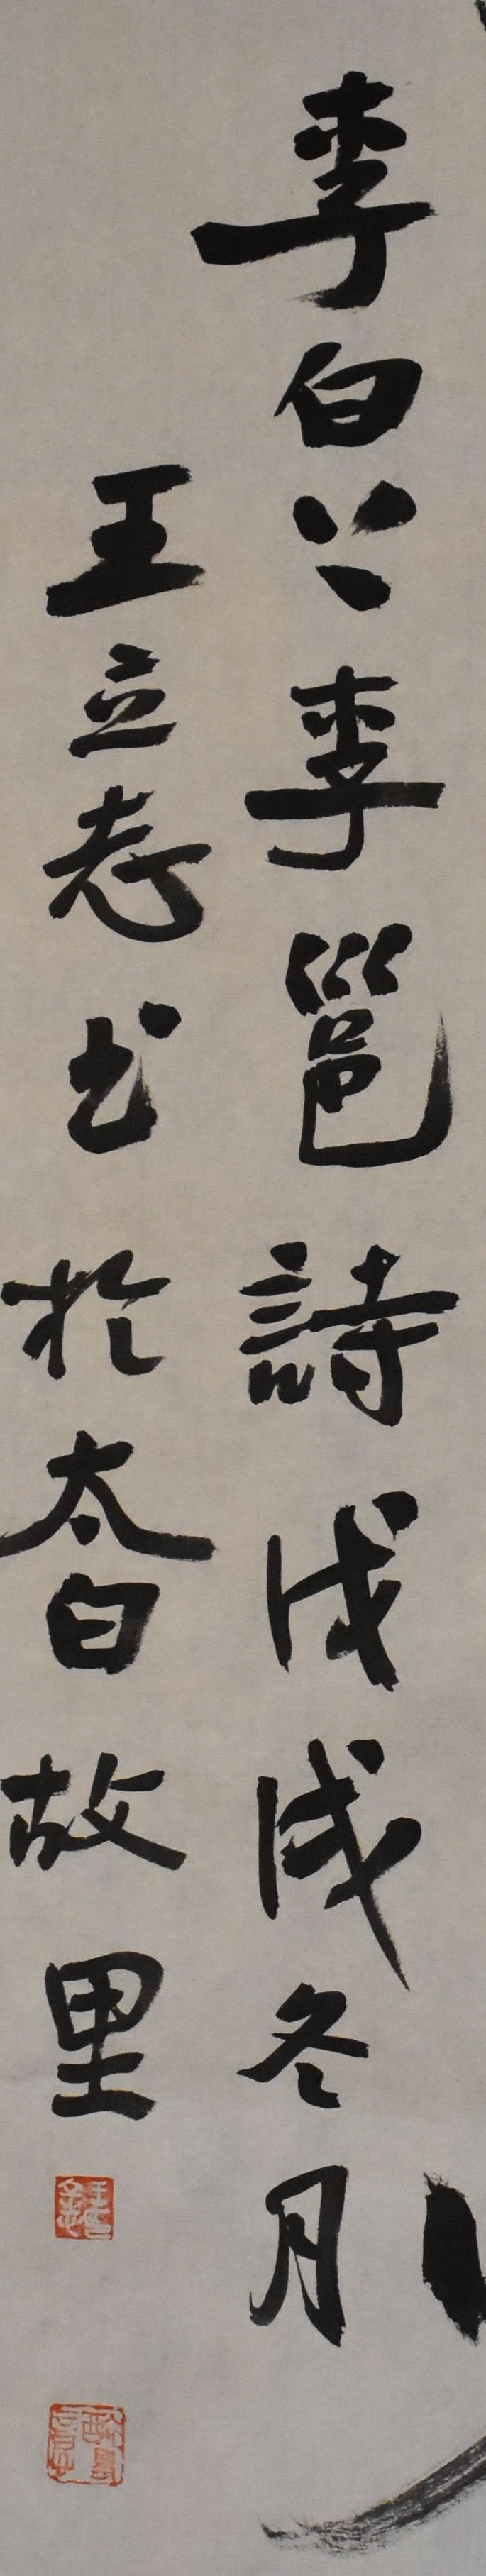 李白上李邕詩戊戌冬月
王立志书於太白故里